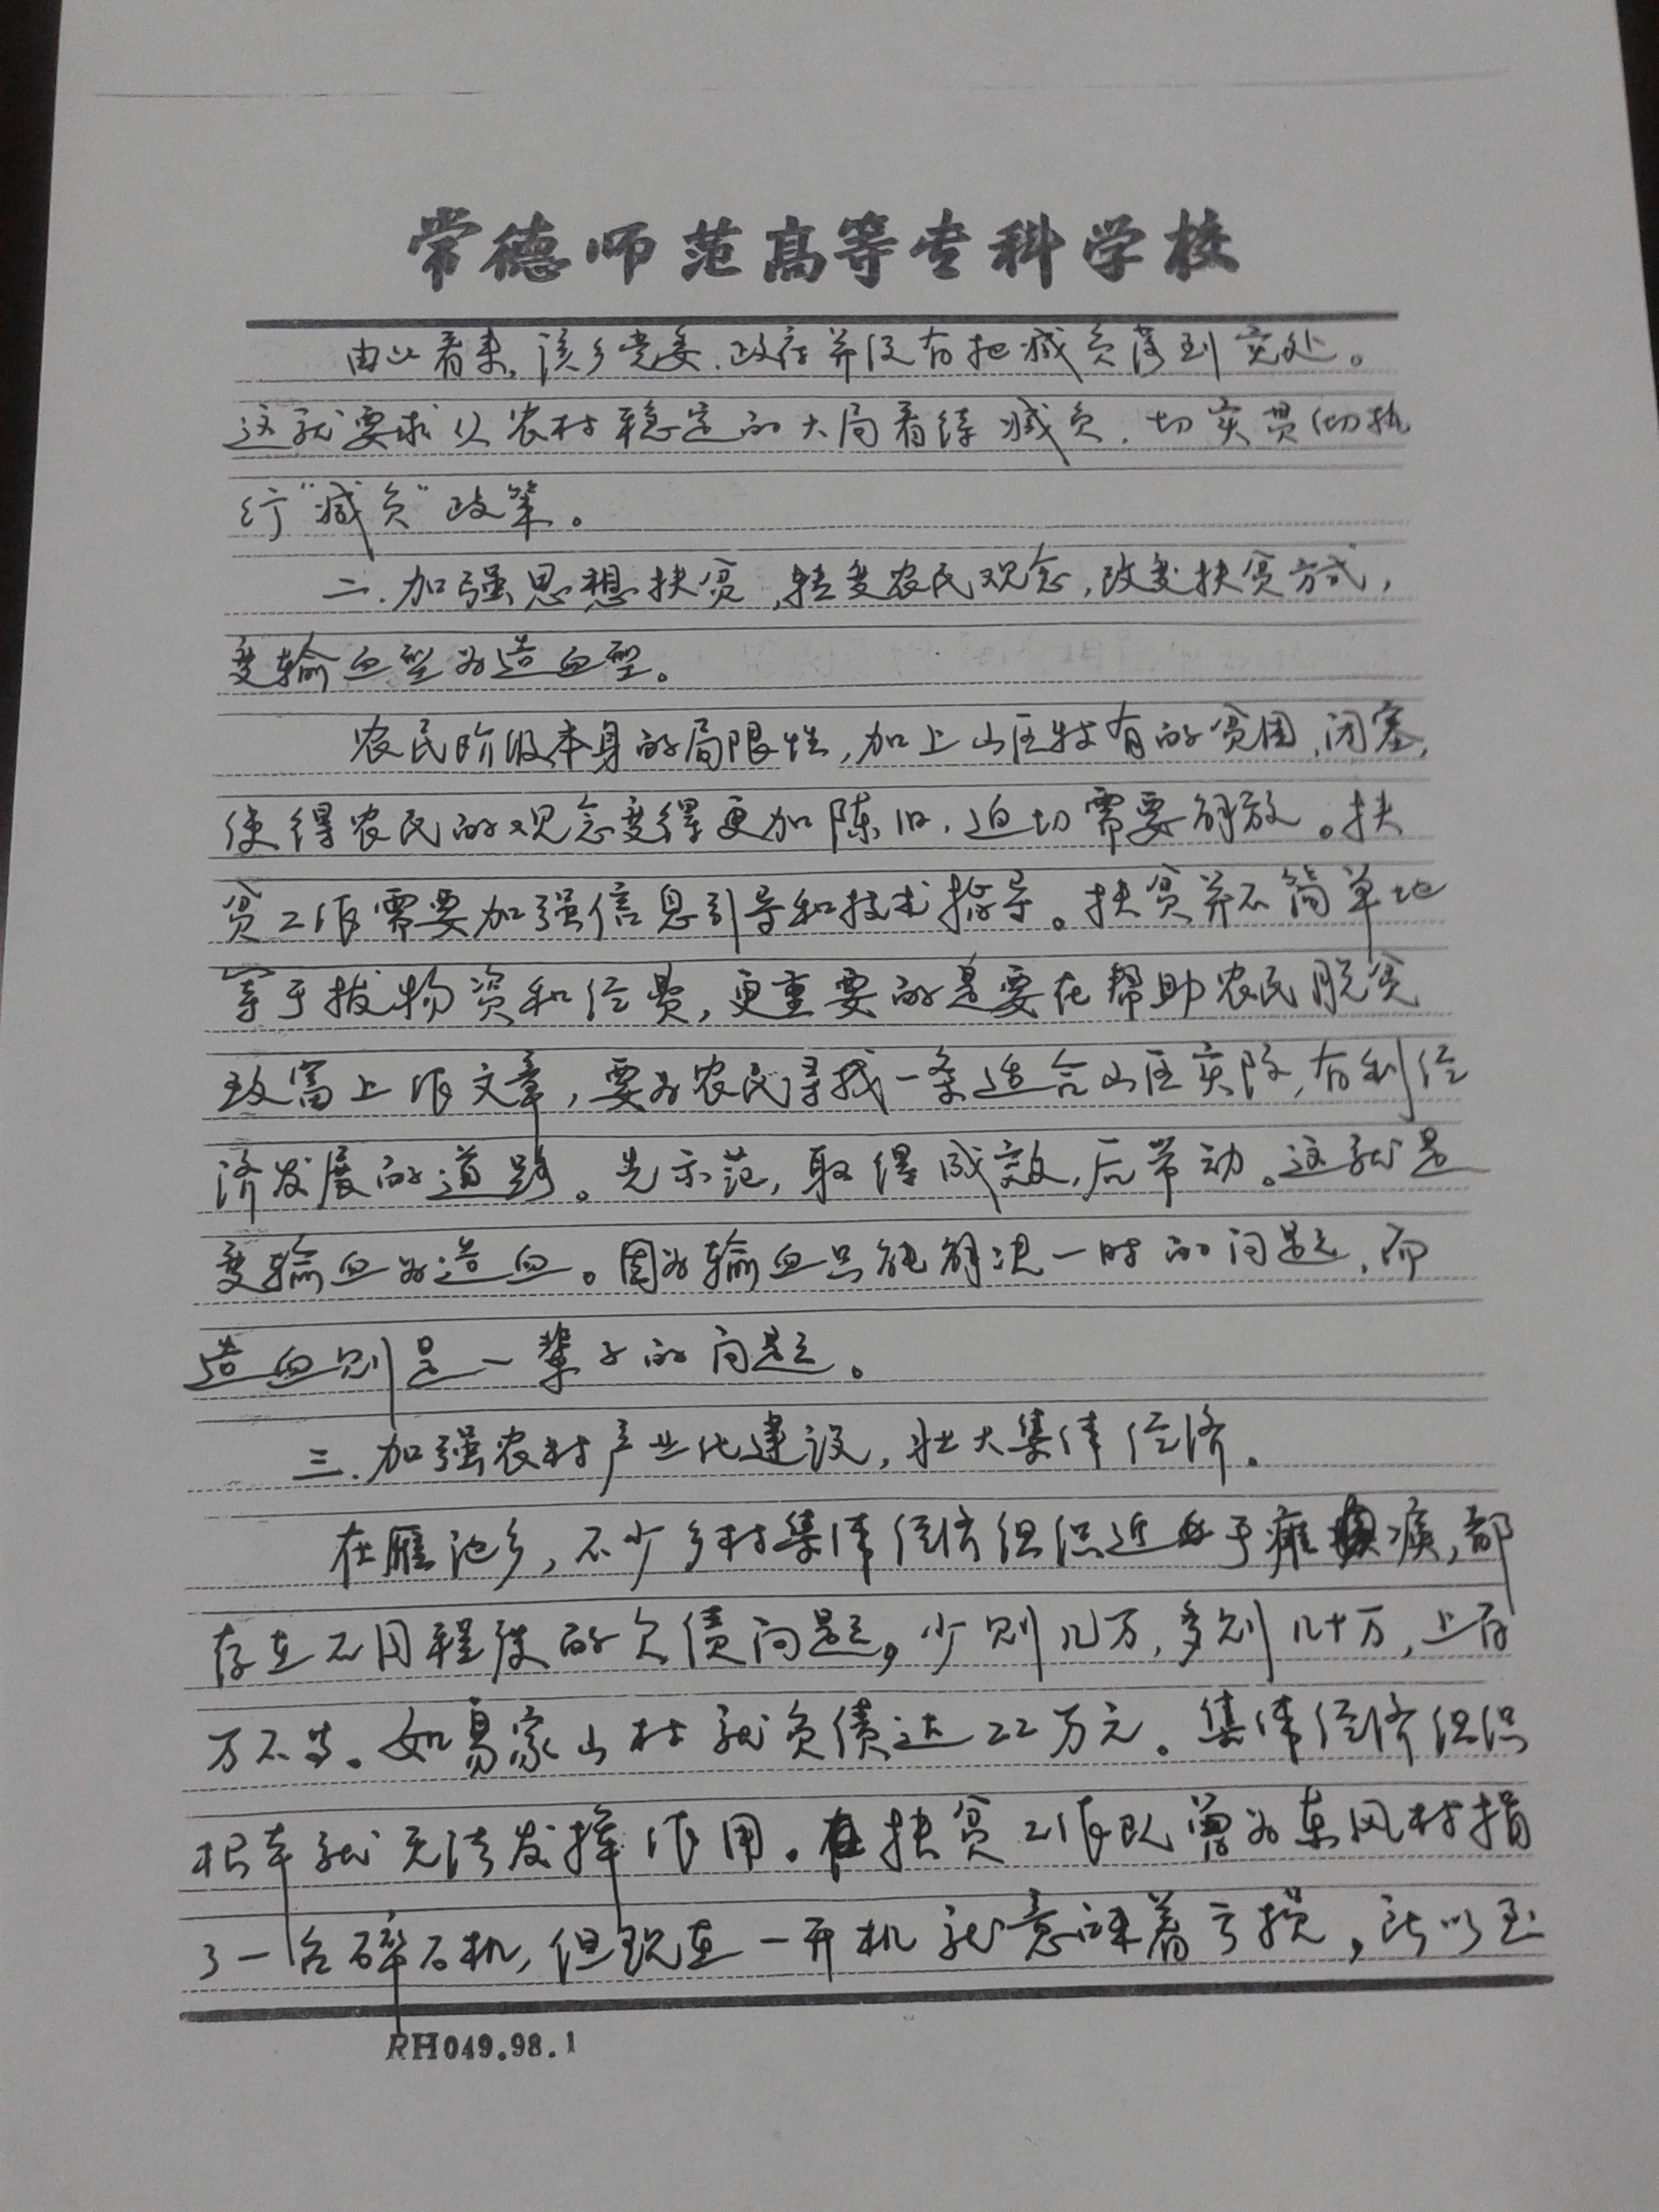 常德师范高等专科学校
由此看来,该乡党委、政府并没有把减负落到实处。
这就要求从农村稳定的大局看待减负,切实贯彻执
行"减负"政策。
二.加强思想扶贫,转变农民观念,改变扶贫方式,
变输血型为造血型。
农民阶级本身的局限性,加上山区特有的贫困,闭塞,
使得农民的观念变得更加陈旧,迫切需要解放。扶
贫工作需要加强信息引导和技术指导。扶贫并不简单地
等于拔物资和经费,更重要的是要在帮助农民脱贫
致富上作文章,要为农民寻找一条适合山区实际,有利经
济发展的道路。先示范,取得成效,后带动。这就是
变输血为造血。因为输血只能解决一时的问题,而
造血则是一辈子的问题。
三.加强农村产业化建设,壮大集体经济.
在雁池乡,不少乡村集体经济组织近乎于瘫痪,都
存在不同程度的欠债问题,少则几万,多则几十万,上百
万不等。如易家山村就负债达22万元。集体经济组织
根本就无法发挥作用。在扶贫工作队曾为东风村捐
了一台碎石机,但现在一开机就意味着亏损,所以至
RH049.98.1